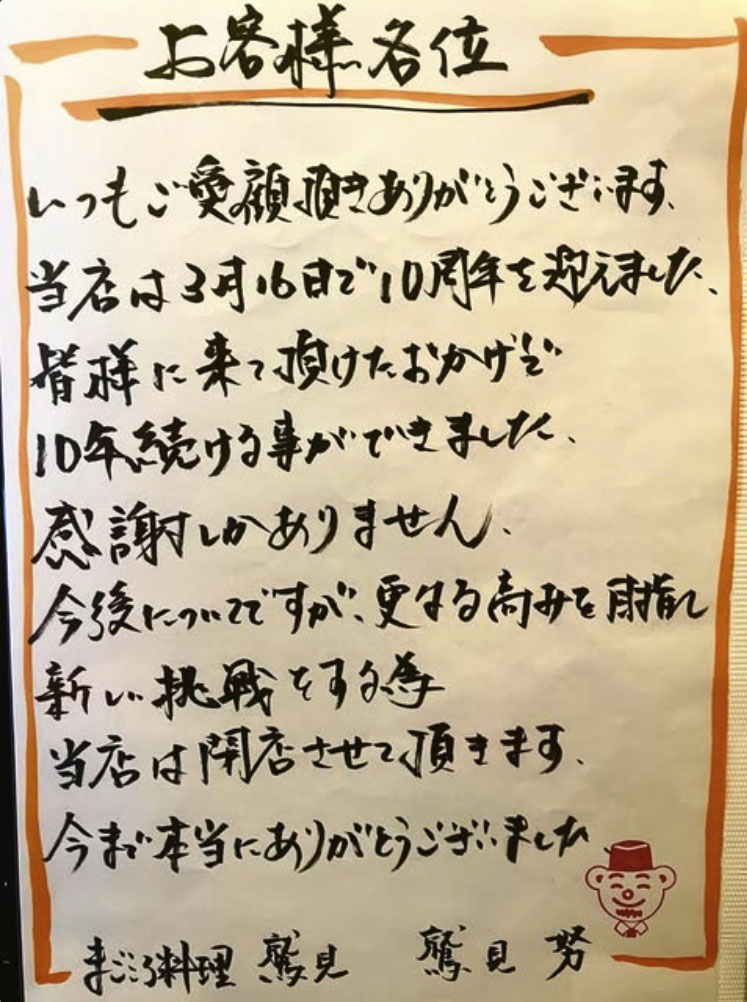 お客様各位
いつもご愛顧頂きありがとうございます、
当店は3月16日で10周年を迎えました、
皆様に来て頂けたおかげで
10年続ける事ができました、
感謝しかありません、
今後についてですが、更なる高みを目指し
新しい挑戦をする為
当店は閉店させて頂きます、
今まで本当にありがとうございました
まごころ料理 鷲見 鷲見 努